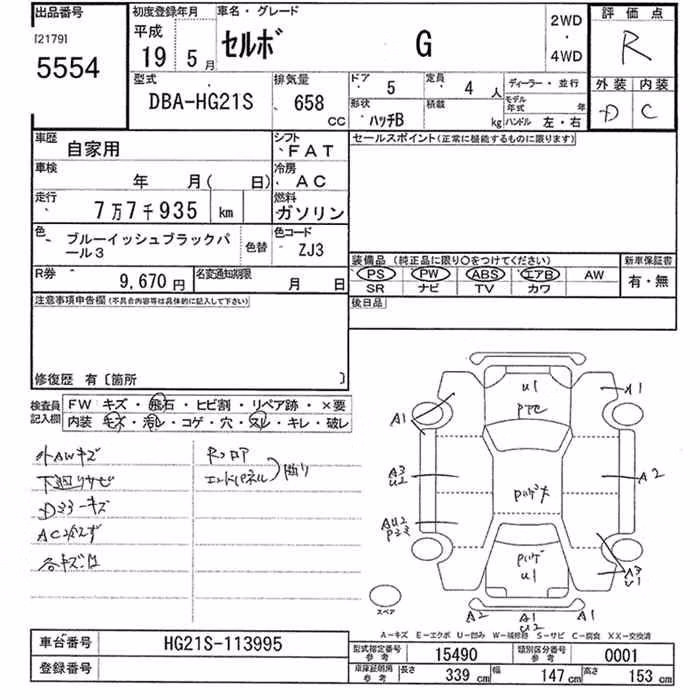 出品番号 初度登録年月 車名・グレード 2WD・4WD 評価点
[2179] 5554 平成 19 5月 セルボ G R
型式 排気量 ドア 5 定員 4人 ディーラー・並行 外装 内装
DBA-HG21S 658 CC 形状 ハッチB 積載 kg モデル年式 年 D C
ハンドル 左・右
車歴 自家用 シフト FAT セールスポイント(正常に機能するものに限ります)
車検 年 月( 日) 冷房 AC
走行 7万7千935 km 燃料 ガソリン
色 ブルーイッシュブラックパール3 色替 色コード ZJ3
装備品 (純正品に限り○をつけてください) 新車保証書
PS PW ABS エアB AW 有・無
SR ナビ TV カワ
R券 9,670円 名変通知期限 月 日
後日品
注意事項申告欄(不具合内容等は具体的に記入して下さい)
修復歴 有〔箇所 〕
検査員記入欄 FW キズ・飛石・ヒビ割・リペア跡・×要
内装 キズ・汚レ・コゲ・穴・スレ・キレ・破レ
外AWキズ
下廻りサビ
AC冷えず
Rフロア
エンドパネル
U1
A1 A1
A3
U2
A2
AU2
U1
A3
U1
A2 A1 A1
U2
スペア
A-キズ E-エクボ U-凹み W-補修跡 S-サビ C-腐食 XX-交換済
車台番号 HG21S-113995
登録番号
型式指定番号 参考 15490 類別区分番号 参考 0001
車庫証明用 参考 長さ 339 cm 幅 147 cm 高さ 153 cm